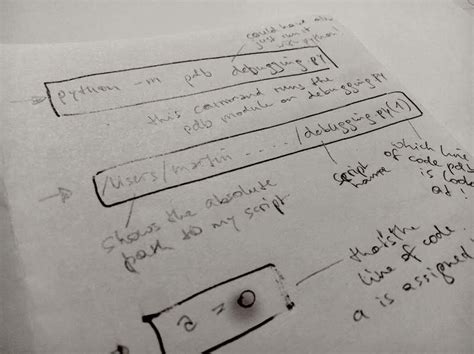 could have also
just run it
with python
python -m pdb debugging.py
this command runs the
pdb module on debugging.py
/Users/martin ..... /debugging.py(1)
shows the absolute
path to my script
script
name
which line
of code pdb
is
at
a = 0
that's the
line of code.
a is assigned